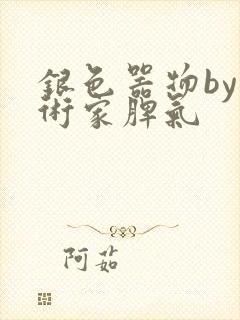 銀色器物by
術家脾氣
阿茹